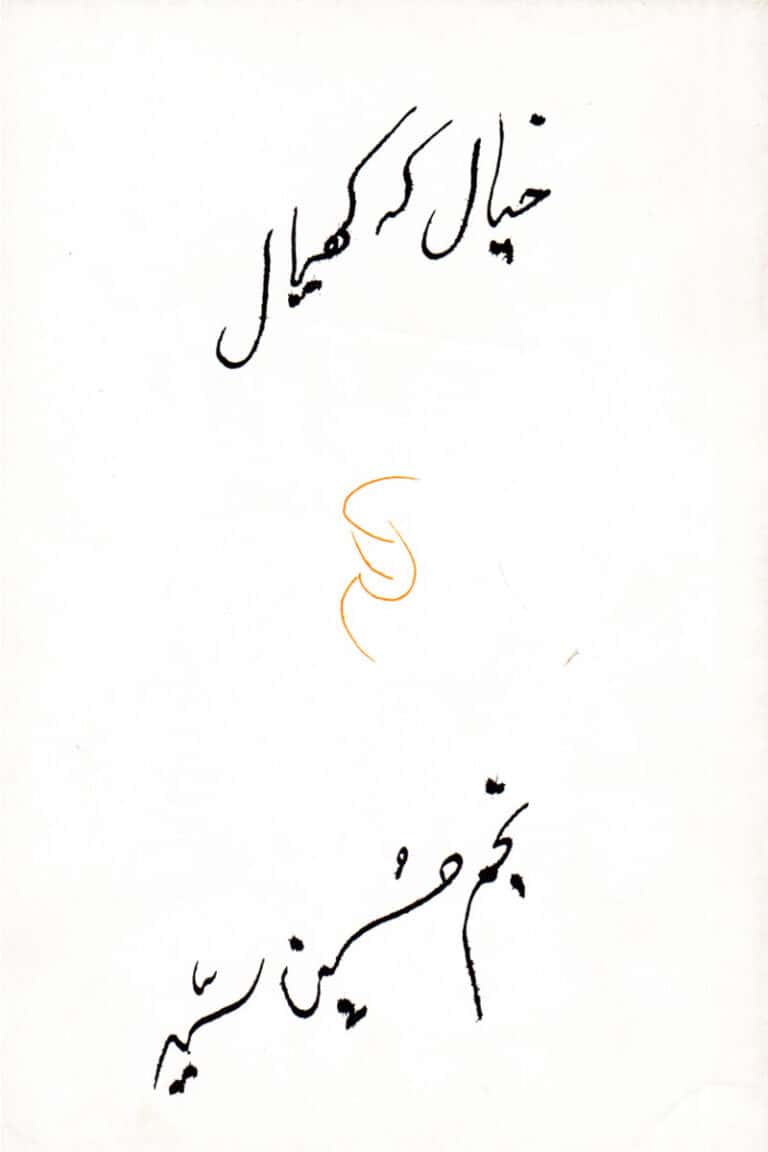 خیال کہ کھیال
نجم حُسین سیّد